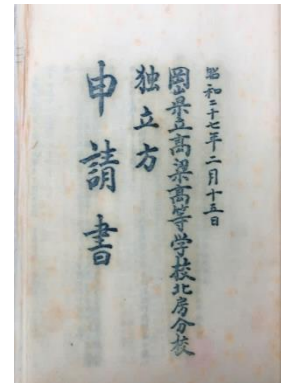 昭和二十七年二月十五日
岡山県立高梁高等学校北房分校
独立方
申請書